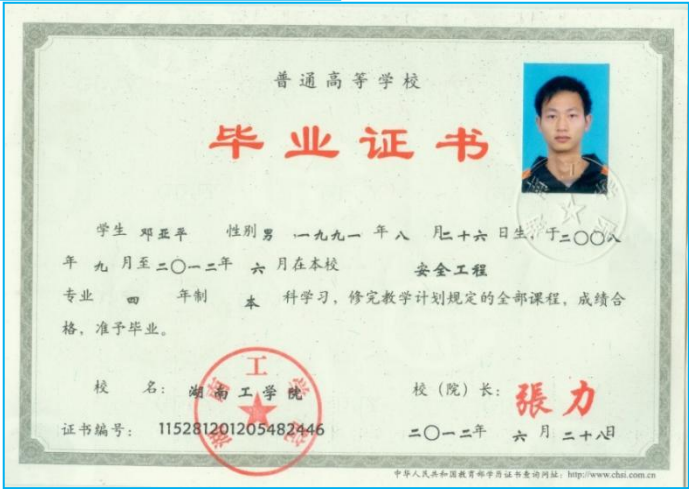 普通高等学校
毕业证书
学生 邓亚平 性别 男 ,一九九一 年 八 月 二十六 日生,于 二〇〇八
年 九 月至 二〇一二 年 六 月在本校 安全工程
专业 四 年制 本 科学习,修完教学计划规定的全部课程,成绩合
格,准予毕业。
校 名: 湖南工学院
校(院)长: 張力
证书编号: 115281201205482446
二〇一二年 六 月 二十八日
中华人民共和国教育部学历证书查询网址: http://www.chsi.com.cn
湖南工学院